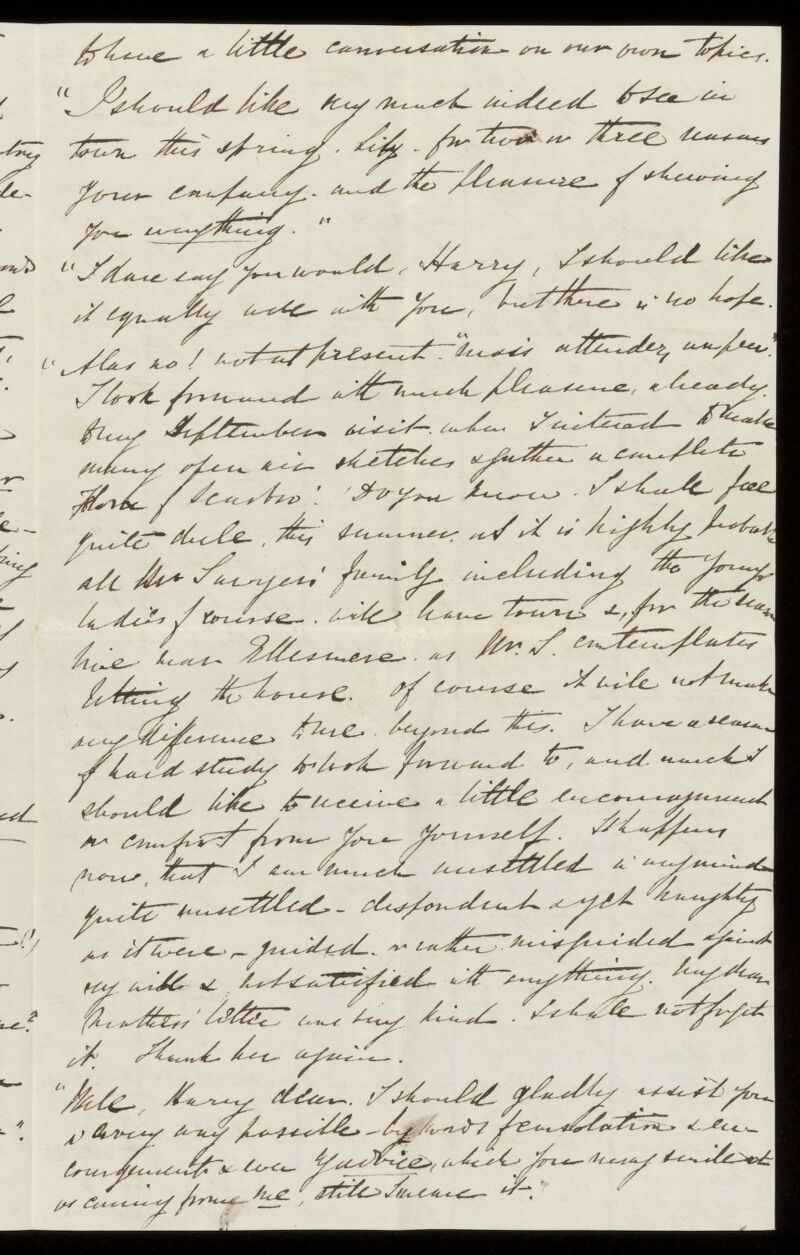 to have a little conversation on our own topics.
"I should like very much indeed to see in
town this spring. Lily. for two or three reasons
your company. and the pleasure of shewing
you everything."
"I dare say you would, Harry, I should like
it equally well with you, but there is no hope.
"Alas no! not at present. "mais attendez un peu."
I look forward with much pleasure, already
to my September visit. when I intend to make
many open air sketches & gather a complete
Flora of Scarbro'. Do you know. I shall feel
quite dull, this summer. as it is highly probable
all Mr Sawyers' family including the young
ladies of course. will leave town &, for the season
live near Ellesmere. as Mr. S. contemplates
letting the house. Of course it will not make
any difference to me beyond this. I have a season
of hard study to look forward to, and much I
should like to receive a little encouragement
or comfort from you yourself. It happens
now, that I am much unsettled in my mind
quite unsettled - despondent & yet haughty
as it were - guided - or rather misguided against
my will & not satisfied with anything. My dear
Mothers' letter was very kind. I shall not forget
it. Thank her again.
"Well, Harry dear. I should gladly assist you
in every way possible - by words of consolation & en-
couragement & even of advice, which you may smile at
as coming from me, still I mean it.